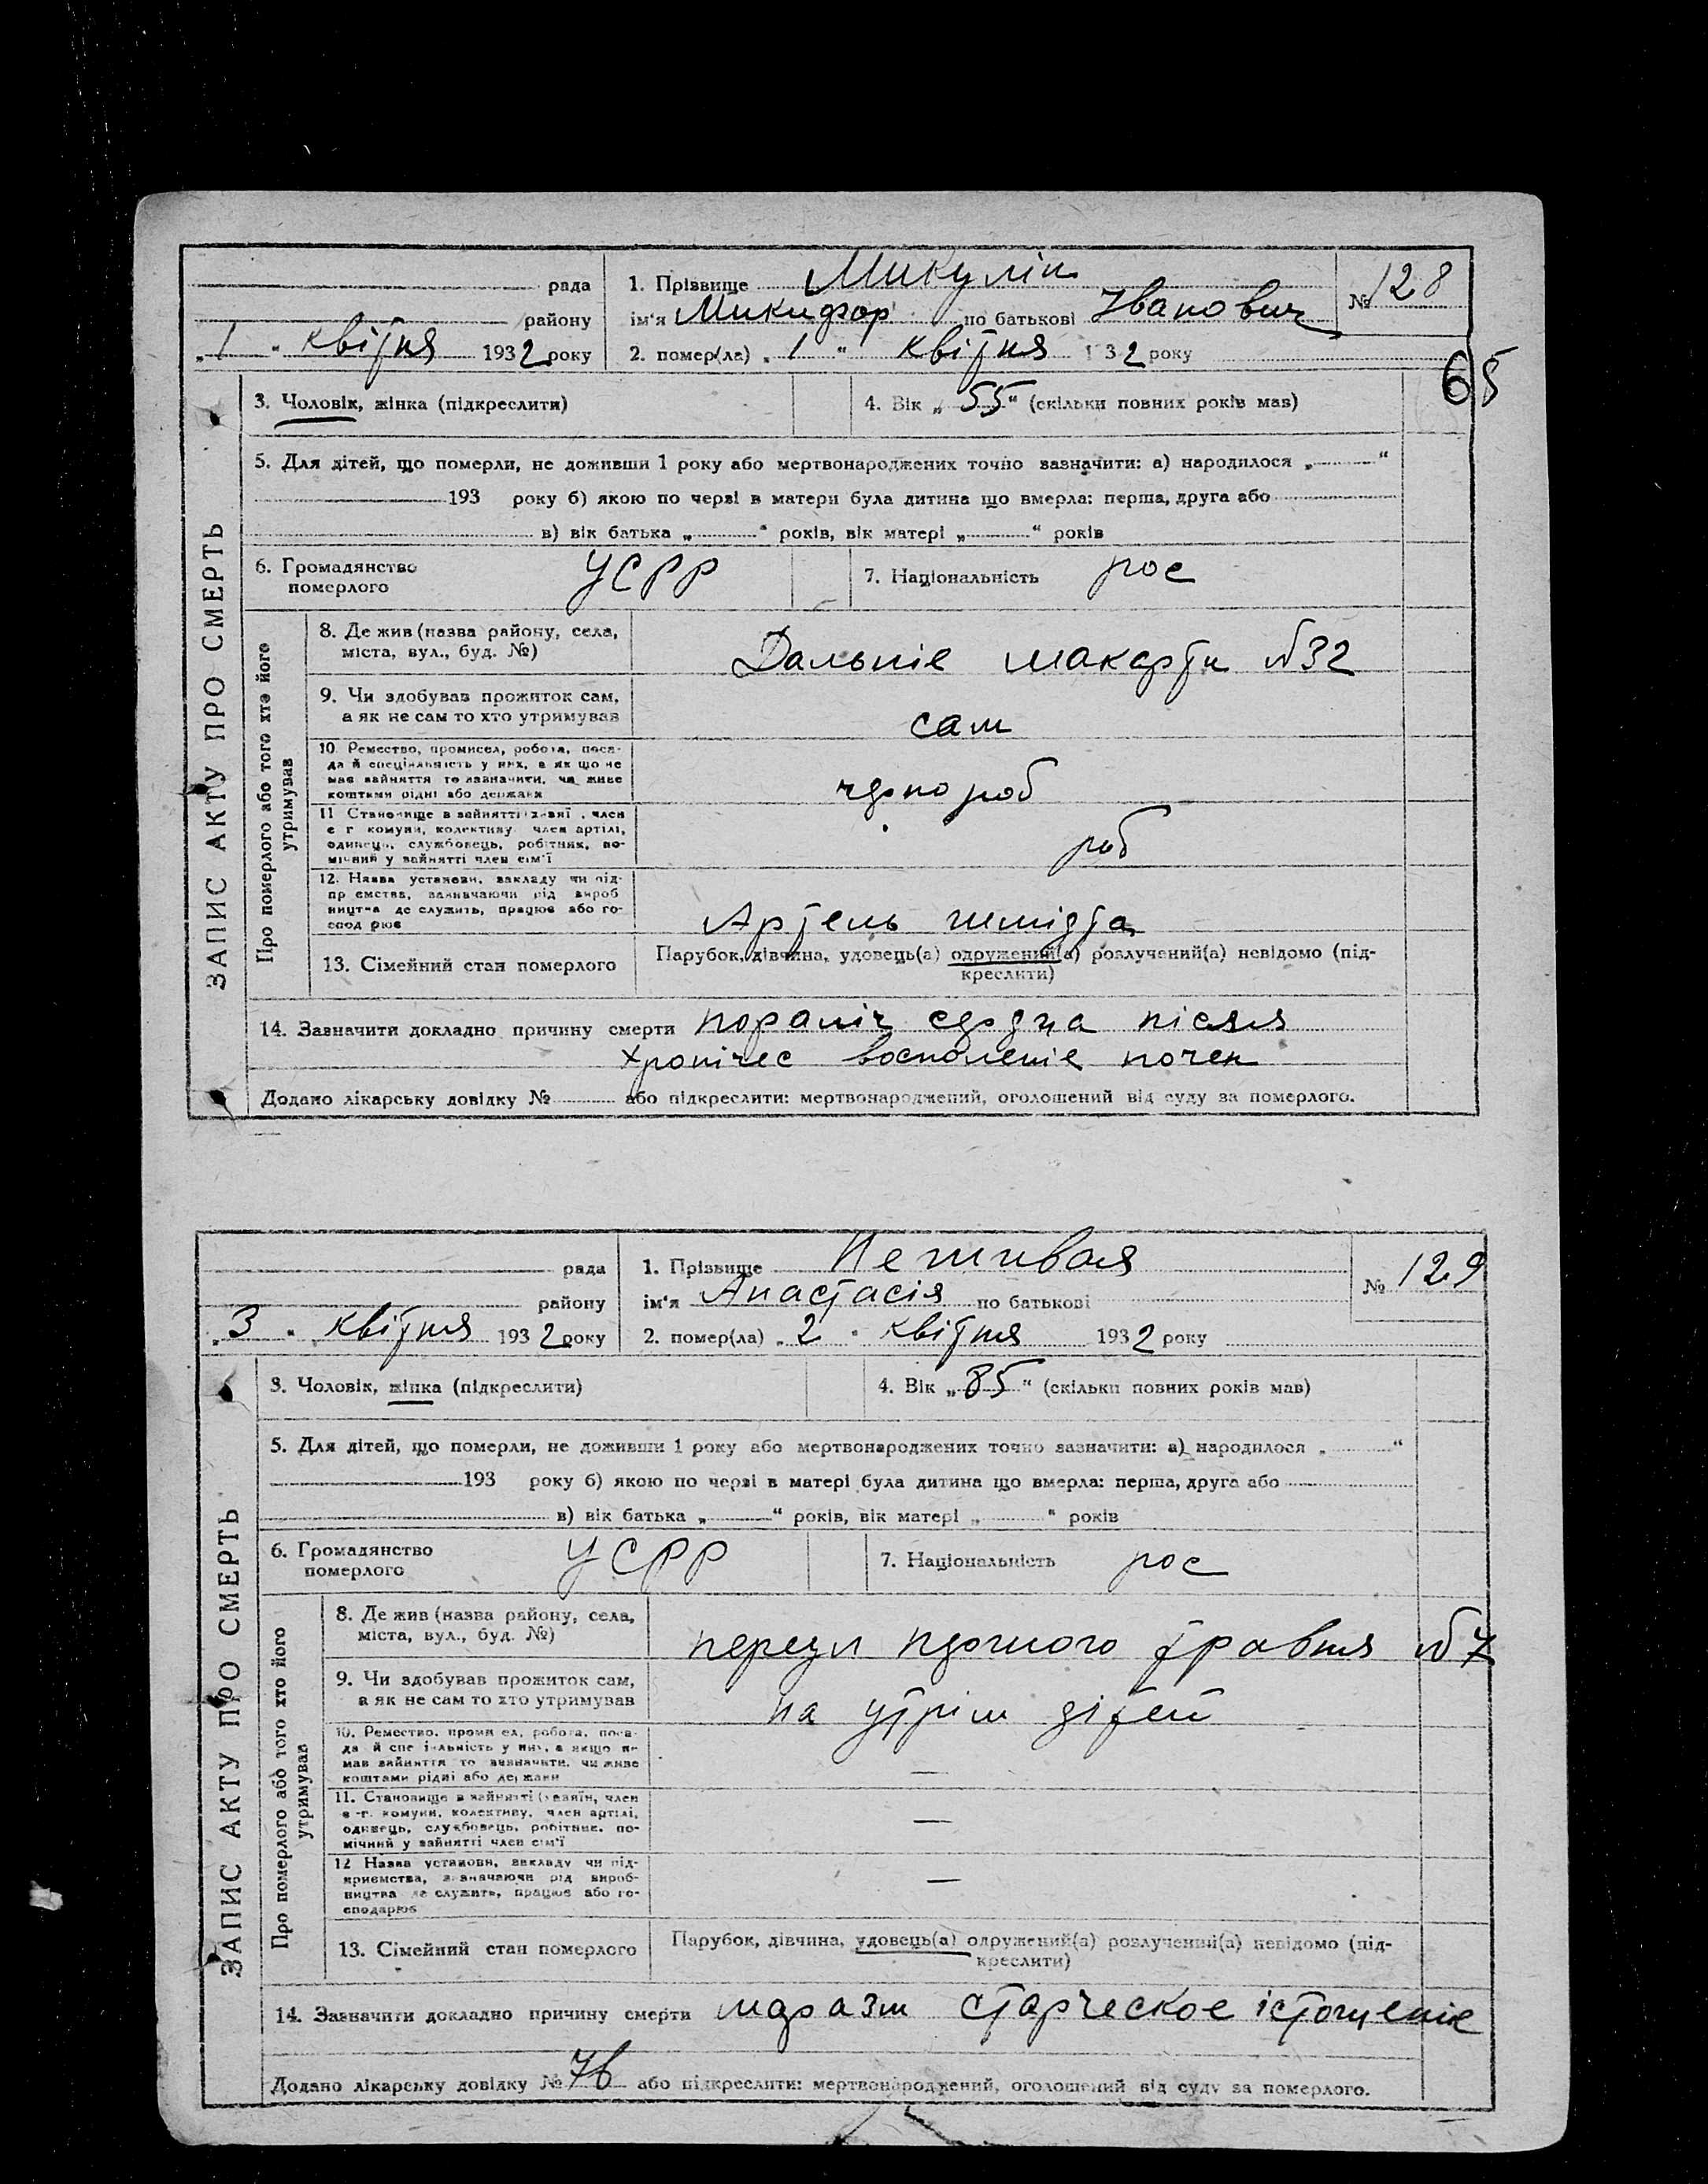 рада
району
„ 1 “ квітня 1932 року
1. Прізвище Микулін
ім'я Микифор по батькові Іванович
№ 128
2. помер(ла) „ 1 “ квітня 1932 року
65
ЗАПИС АКТУ ПРО СМЕРТЬ
3. Чоловік, жінка (підкреслити)
4. Вік „ 55 “ (скільки повних років мав)
5. Для дітей, що померли, не доживши 1 року або мертвонароджених точно зазначити: а) народилося „ “
193 року б) якою по черзі в матери була дитина що вмерла: перша, друга або
в) вік батька „ “ років, вік матері „ “ років
6. Громадянство
померлого
УСРР
7. Національність рос
Про померлого або того хто його
утримував
8. Де жив (назва району, села,
міста, вул., буд. №)
Дальніе макорти №32
9. Чи здобував прожиток сам,
а як не сам то хто утримував
сам
10. Ремество, промисел, робота, поса-
да й спеціяльність у них, а якщо не
мав зайняття то зазначити, чи живе
коштами рідні або держави
чорно роб
11 Становище в зайнятті: хазяї , член
с г комуни, колективу член артілі,
одинець, службовець, робітник, по-
мічний у зайнятті член сім'ї
роб
12. Назва установи, закладу чи під-
пр ємства, зазначаючи рід вироб
ництва де служить, працює або го-
спод рює
Артель шмідта
13. Сімейний стан померлого
Парубок, дівчина, удовець(а) одружений(а) розлучений(а) невідомо (під-
креслити)
14. Зазначити докладно причину смерти пораліч сердца після
хронічес восполеніе почек
Додано лікарську довідку № або підкреслити: мертвонароджений, оголошений від суду за померлого.
рада
району
„ 3 “ квітня 1932 року
1. Прізвище Неживая
ім'я Анастасія по батькові
№ 129
2. помер(ла) „ 2 “ квітня 1932 року
ЗАПИС АКТУ ПРО СМЕРТЬ
3. Чоловік, жінка (підкреслити)
4. Вік „ 85 “ (скільки повних років мав)
5. Для дітей, що померли, не доживши 1 року або мертвонароджених точно зазначити: а) народилося „ “
193 року б) якою по черзі в матері була дитина що вмерла: перша, друга або
в) вік батька „ “ років, вік матері „ “ років
6. Громадянство
померлого
УСРР
7. Національність рос
Про померлого або того хто його
утримував
8. Де жив (назва району, села,
міста, вул., буд. №)
переул першого травня №7
9. Чи здобував прожиток сам,
а як не сам то хто утримував
на утрім дітей
10. Ремество, проми ел, робота, поса-
да й спе іяльність у них, а якщо не
мав зайняття то зазначити, чи живе
коштами рідні або держави
—
11. Становище в зайнятті (хазяїн, член
с -г. комуни, колективу, член артілі,
одинець, службовець, робітник, по-
мічний у зайнятті член сім'ї
—
12 Назва установи, закладу чи під-
приємства, зазначаючи рід вироб-
ництва де служить, працює або го-
сподарює
—
13. Сімейний стан померлого
Парубок, дівчина, удовець(а) одружений(а) розлучений(а) невідомо (під-
креслити)
14. Зазначити докладно причину смерти маразм старческое істощеніе
Додано лікарську довідку № 76 або підкреслити: мертвонароджений, оголошений від суду за померлого.